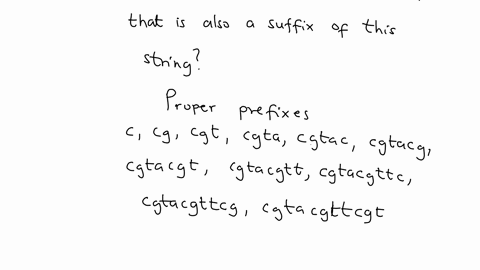 that is also a suffix of this
string?
Proper prefixes
c, cg, cgt, cgta, cgtac, cgtacg,
cgtacgt, cgtacgtt, cgtacgttc,
cgtacgttcg, cgtacgttcgt